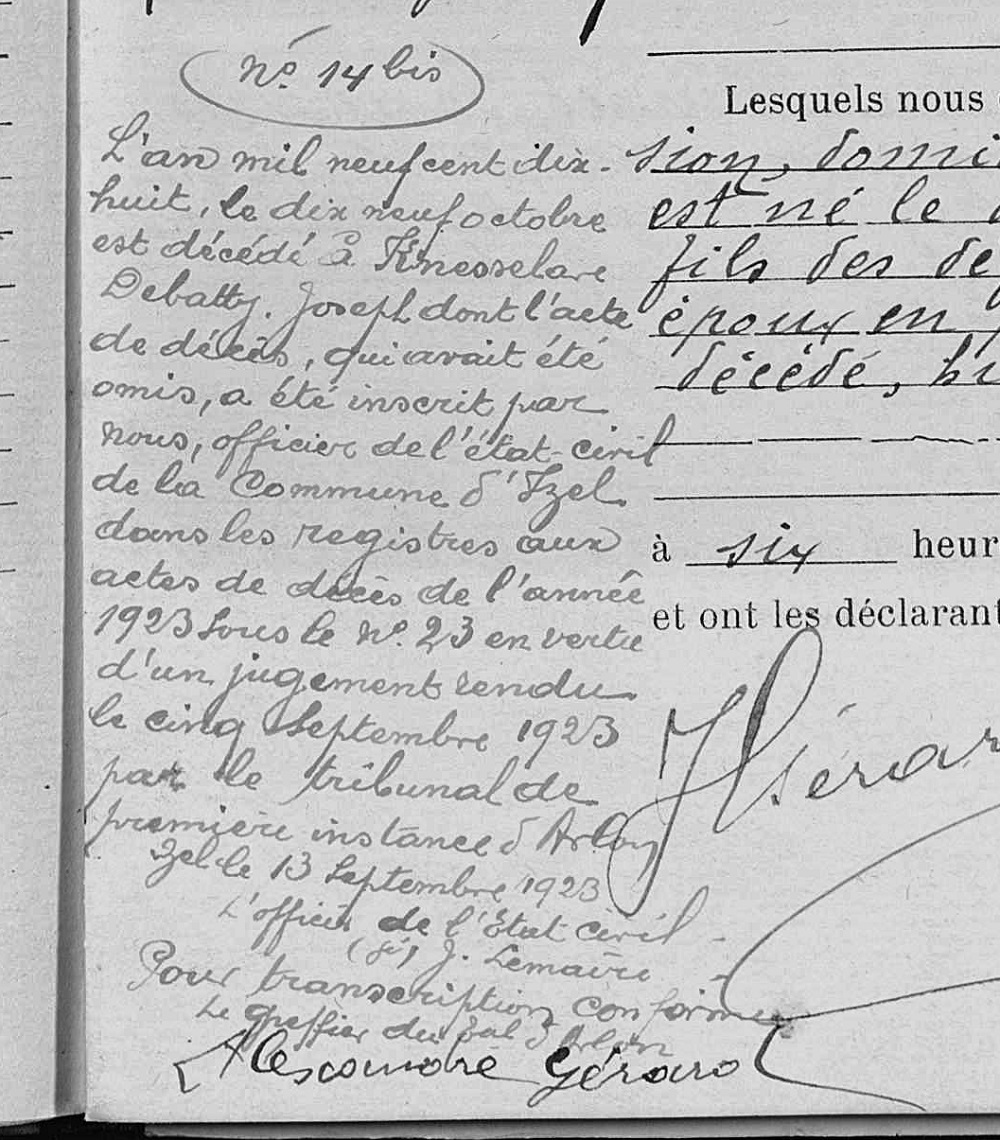 n.º 14 bis
L'an mil neufcent dix-
huit, le dix neuf octobre
est décédé à Knesselare
Debatty. Joseph dont l'acte
de décès, qui avait été
omis, a été inscrit par
nous, officier de l'état-civil
de la Commune d'Izel
dans les registres aux
actes de décès de l'année
1923 sous le N.º 23 en vertu
d'un jugement rendu
le cinq Septembre 1923
par le tribunal de
première instance d'Arlon
Izel le 13 Septembre 1923
L'officier de l'Etat civil
(sé) J. Lemaire
Pour transcription conforme
Le Greffier du bal d'Arlon
Alexandre Gérard
Lesquels nous
sion, domi
est né le
fils des
époux en
décédé,
à six heur
et ont les déclarant
Gérar